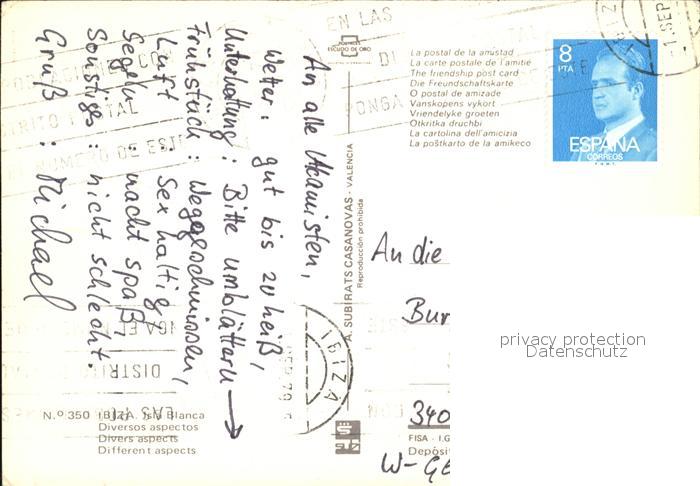 An alle Ukanisten,
Wetter: gut bis zu heiß,
Unterhaltung: Bitte umblättern →
Frühstück: Weggeschmissen,
Luft: Sex haltig
Segeln: macht spaß,
Sonstiges: nicht schlecht.
Gruß: Michael
POSTALES
ESCUDO DE ORO
La postal de la amistad
La carte postale de l'amitié
The friendship post card
Die Freundschaftskarte
O postal de amizade
Vanskopens vykort
Vriendelyke groeten
Otkritka druchbi
La cartolina dell'amicizia
La poŝtkarto de la amikeco
8
PTA
ESPAÑA
CORREOS
A. SUBIRATS CASANOVAS - VALENCIA
Reproducción prohibida
An die
Bur
340
W-GE
FISA - I.G
Depósi
privacy protection
Datenschutz
N.º 350 IBIZA. Isla Blanca
Diversos aspectos
Divers aspects
Different aspects
EN LAS
DI
PONGA
DISTRITO POSTAL
EL NUMERO DE ESTE
IBIZA
SEP 79
IBIZA
-1.SEP
PONGA EL N
DISTRI
EN LAS